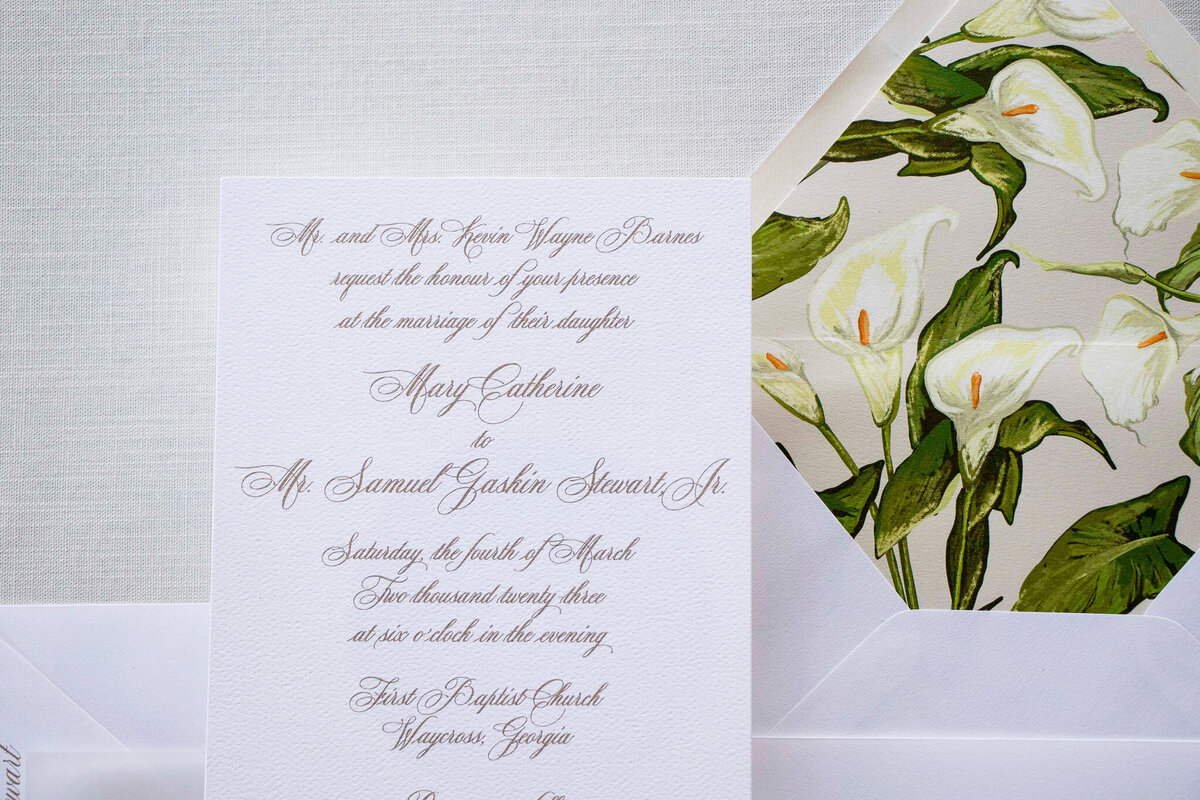 Mr. and Mrs. Kevin Wayne Barnes
request the honour of your presence
at the marriage of their daughter
Mary Catherine
to
Mr. Samuel Gaskin Stewart, Jr.
Saturday, the fourth of March
Two thousand twenty three
at six o'clock in the evening
First Baptist Church
Waycross, Georgia